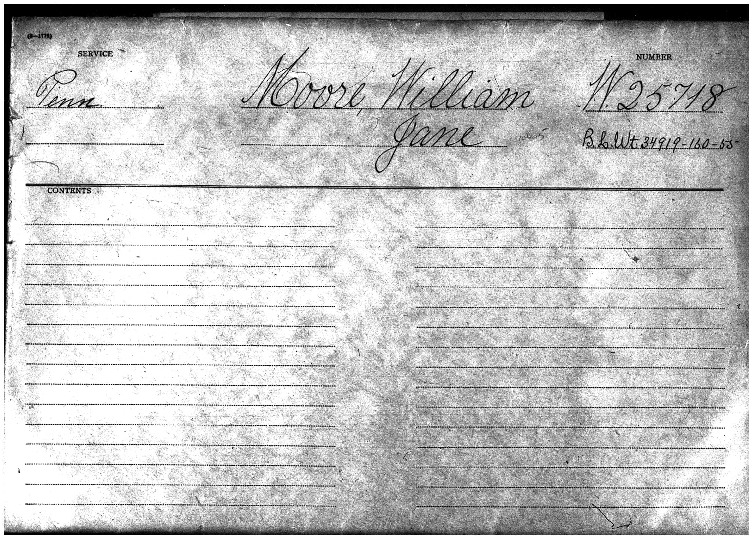 (3-1173)
SERVICE NUMBER
Penn Moore, William W. 25718
Jane B.L.Wt. 34919-160-55
CONTENTS